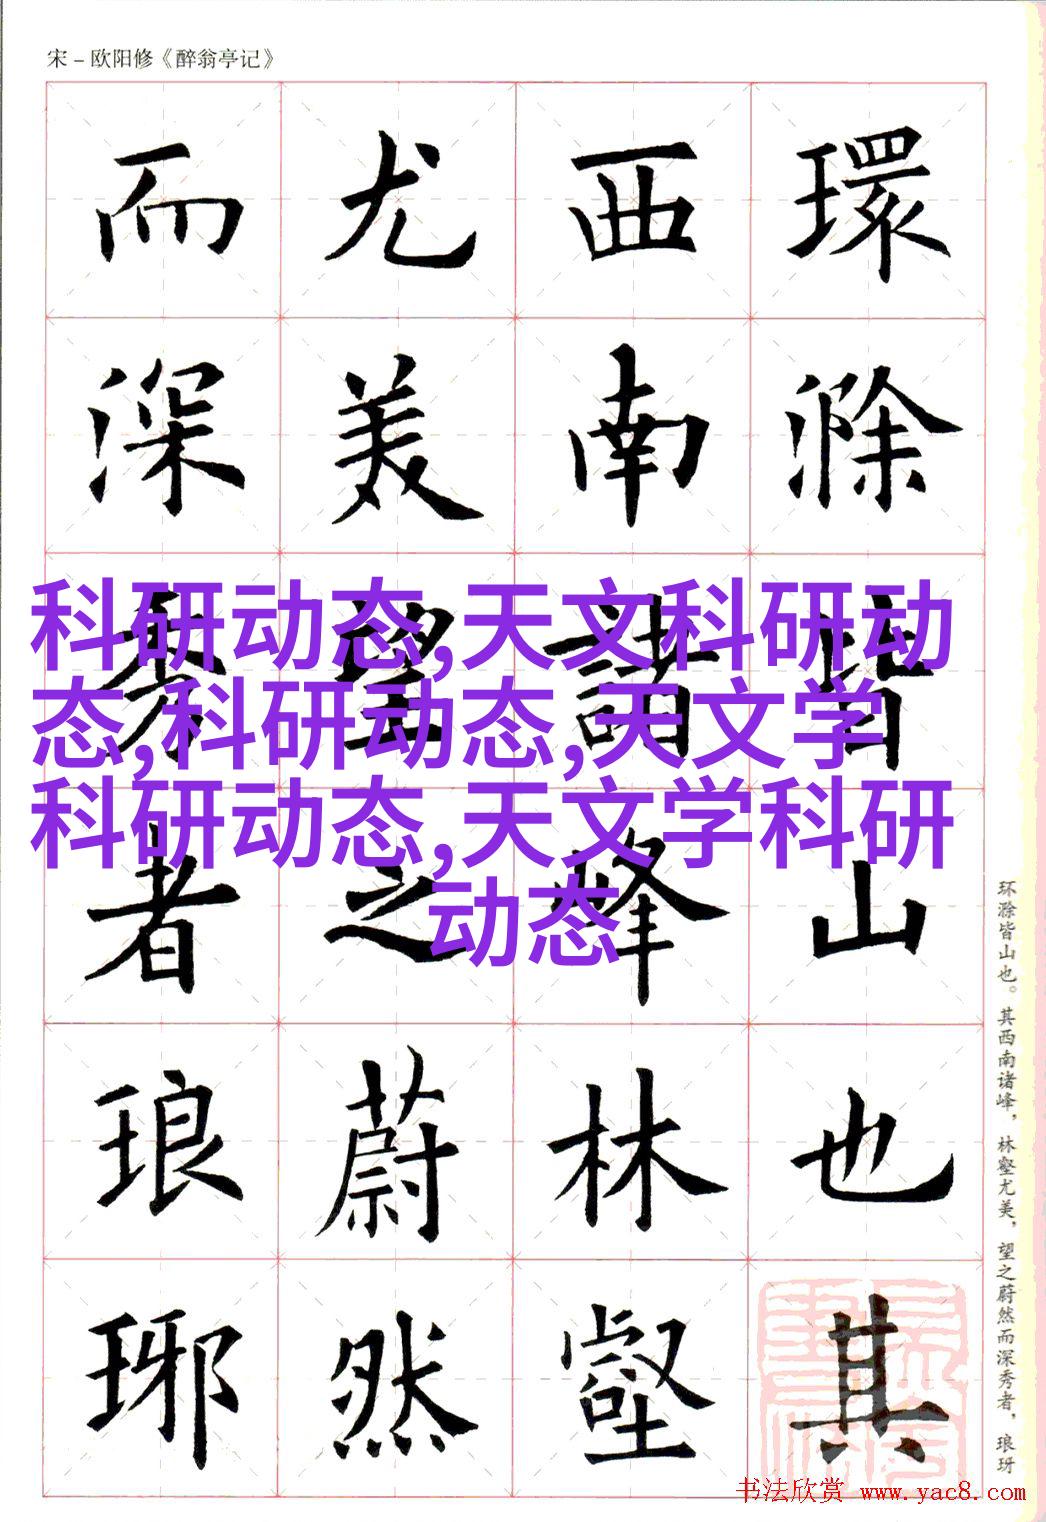 宋－欧阳修《醉翁亭记》
環滁皆山也其
西南諸峰林壑
尤美望之蔚然
而深秀者琅琊
科研动态,天文科研动
态,科研动态,天文学
科研动态,天文学科研
动态
环滁皆山也。其西南诸峰，林壑尤美，望之蔚然而深秀者，琅玡
书法欣赏 www.yac8.com